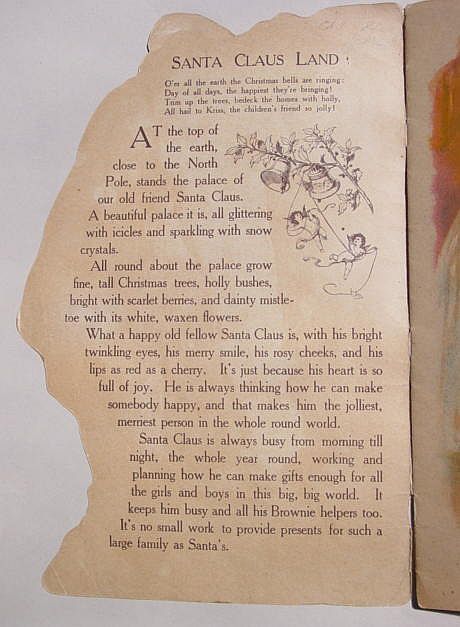 SANTA CLAUS LAND
O'er all the earth the Christmas bells are ringing:
Day of all days, the happiest they're bringing!
Trim up the trees, bedeck the homes with holly,
All hail to Kriss, the children's friend so jolly!
AT the top of
the earth,
close to the North
Pole, stands the palace of
our old friend Santa Claus.
A beautiful palace it is, all glittering
with icicles and sparkling with snow
crystals.
All round about the palace grow
fine, tall Christmas trees, holly bushes,
bright with scarlet berries, and dainty mistle-
toe with its white, waxen flowers.
What a happy old fellow Santa Claus is, with his bright
twinkling eyes, his merry smile, his rosy cheeks, and his
lips as red as a cherry. It's just because his heart is so
full of joy. He is always thinking how he can make
somebody happy, and that makes him the jolliest,
merriest person in the whole round world.
Santa Claus is always busy from morning till
night, the whole year round, working and
planning how he can make gifts enough for all
the girls and boys in this big, big world. It
keeps him busy and all his Brownie helpers too.
It's no small work to provide presents for such a
large family as Santa's.